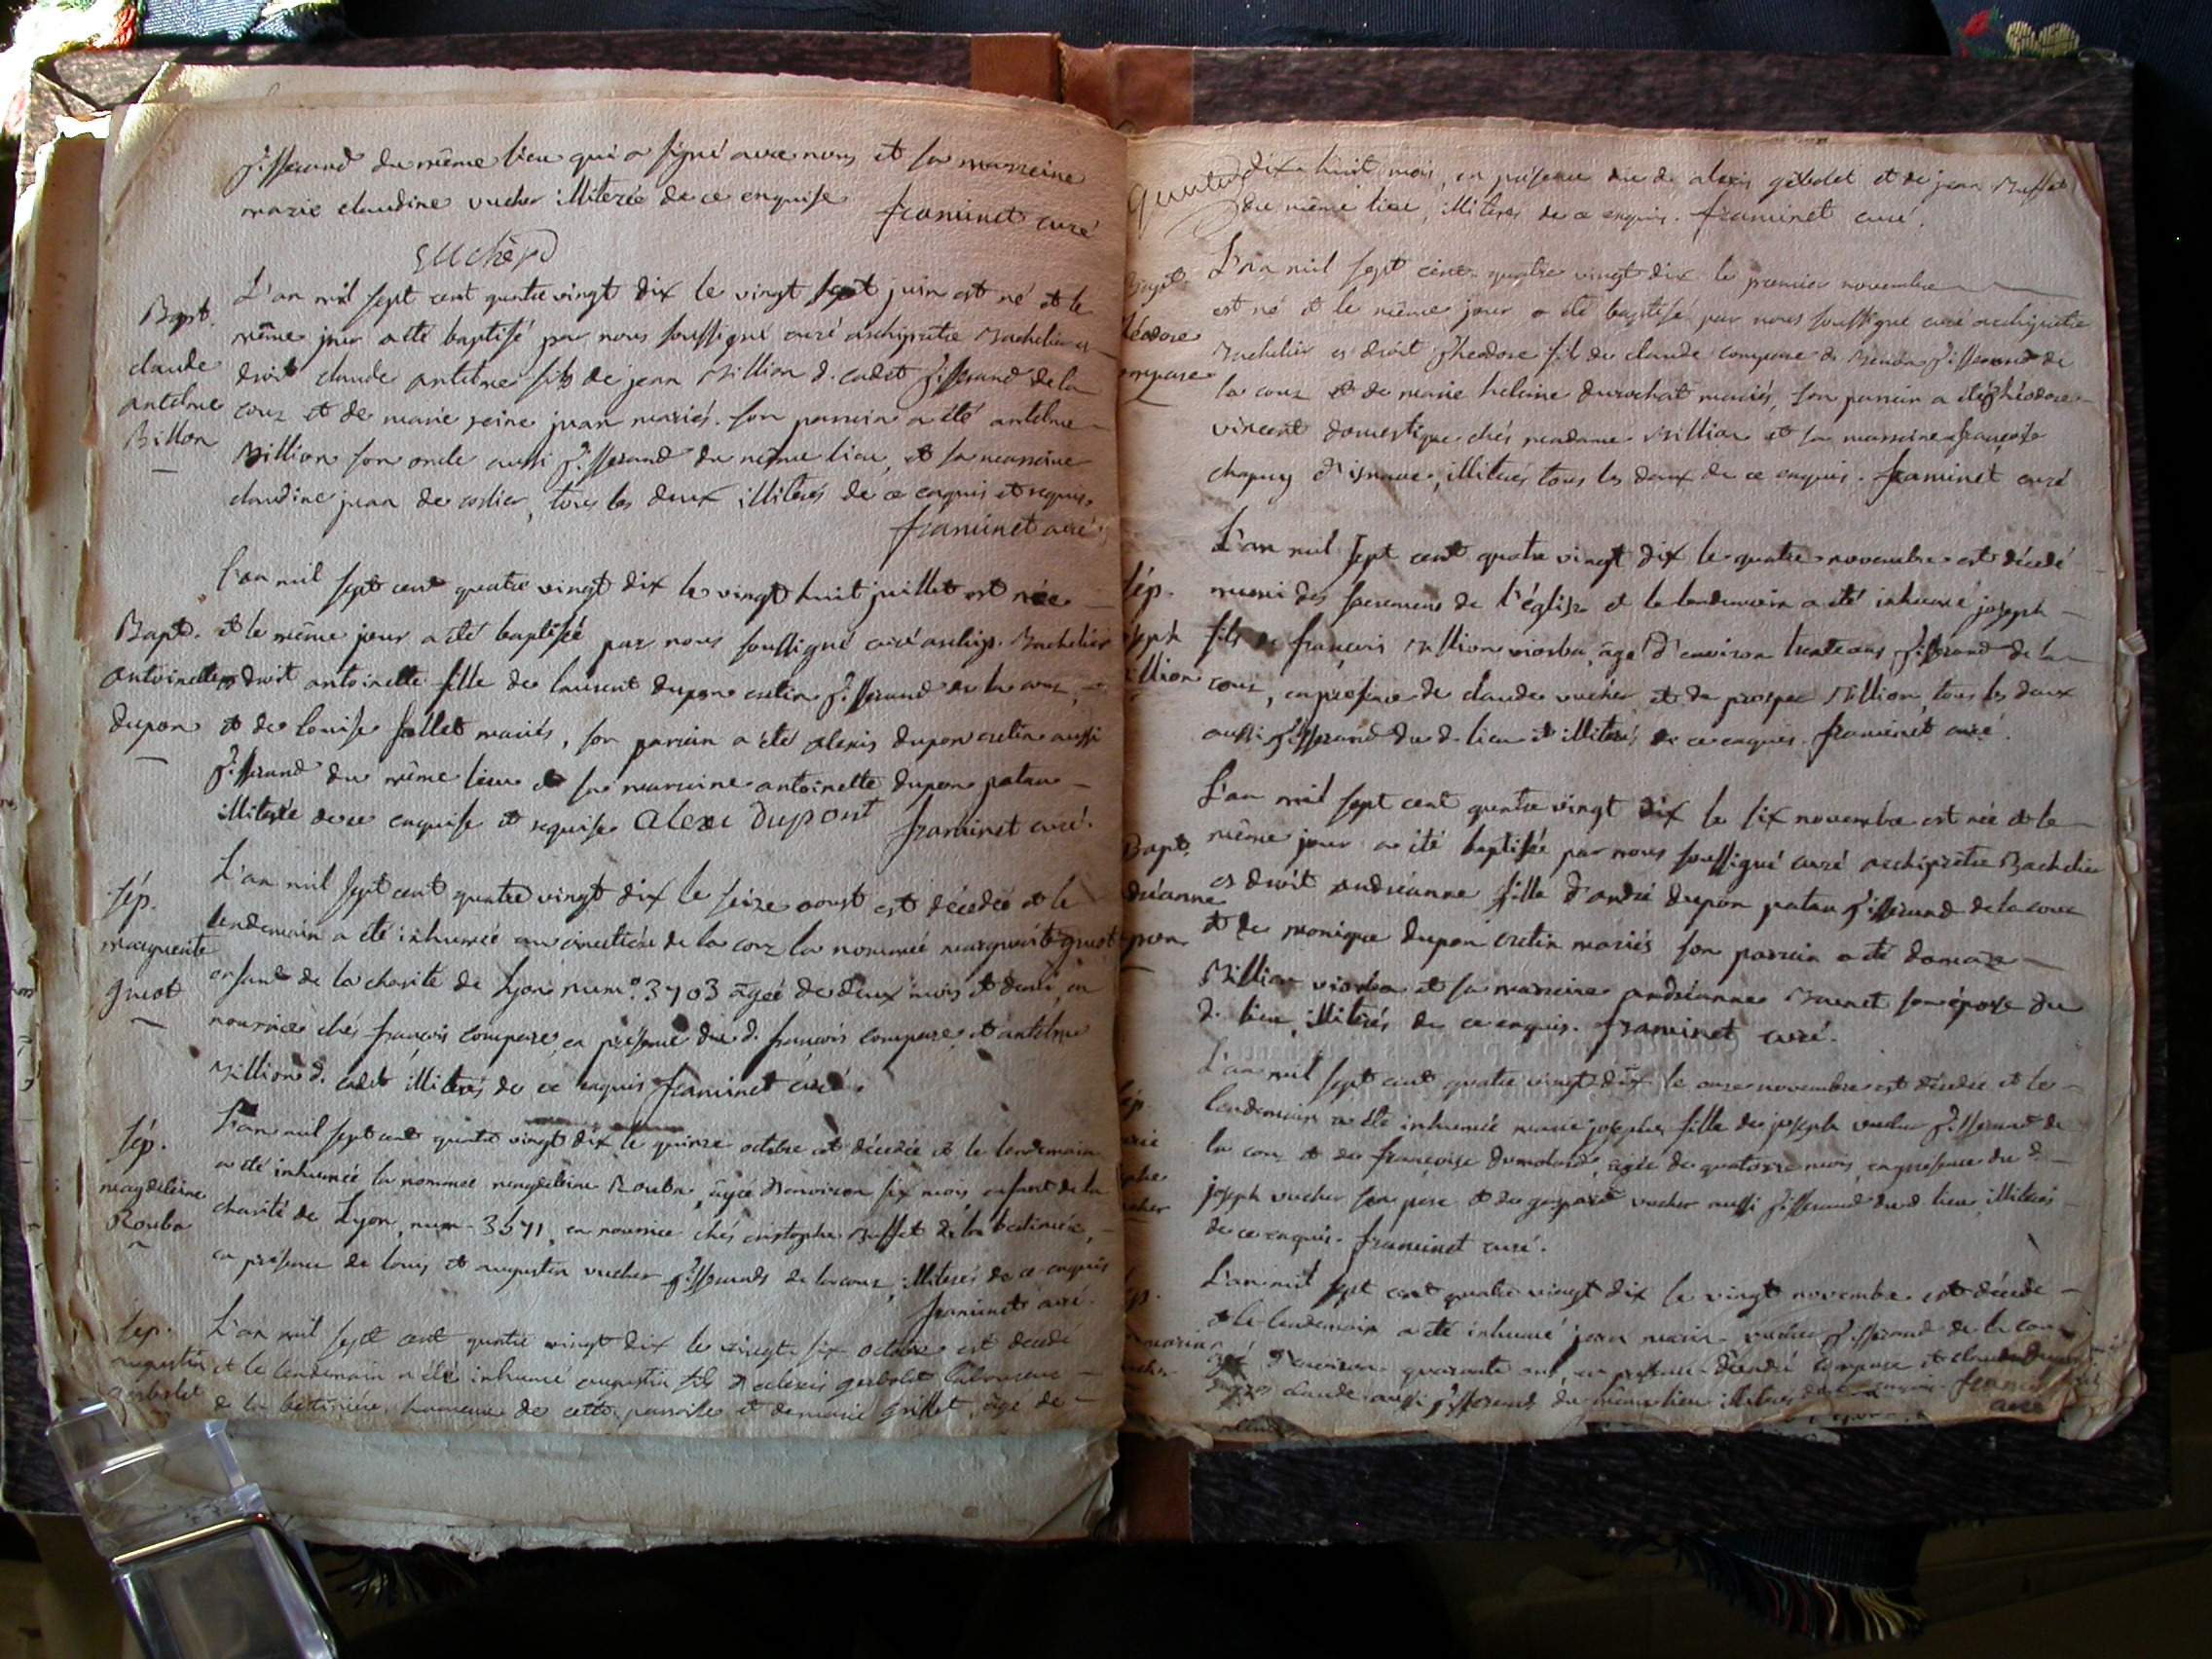 Tisserand du même lieu qui a signé avec nous et sa marreine
marie claudine vucher illiterée de ce enquise framinet curé
Bapt.
claude
antelme
Billon
L'an mil sept cent quatre vingt dix le vingt sept juin est né et le
même jour a été baptisé par nous soussigné curé archiprêtre Bachelier es
droit claude antelme fils de jean Million d. cadet Tisserand de la
couz et de marie reine juan mariés. son parrein a été antelme
Million son oncle aussi Tisserand du même lieu, et sa marreine
claudine juan de corlier, tous les deux illiterés de ce enquis et requis.
framinet curé
Bapt.
antoinette
dupon
l'an mil sept cent quatre vingt dix le vingt huit juillet est née
et le même jour a été baptisée par nous soussigné curé archip. Bachelier
es droit antoinette fille de laurent dupon cretin Tisserand de la couz,
et de louise mariés, son parrein a été alexis dupon cretin aussi
Tisserand du même lieu et sa marreine antoinette dupon patau
illiterée de ce enquise et requise Alexi Dupont framinet curé.
sép.
marguerite
guiot
L'an mil sept cent quatre vingt dix le seize aoust est décedée et le
lendemain a été inhumée au cimetière de la couz la nommée marguerite guiot
enfant de la charité de Lyon num.º 3703 agée de deux mois et demi, en
nourrice chés françois compare, en présence du d. françois compare, et antelme
Million d. cadet illiterés de ce enquis framinet curé.
sép.
magdeleine
Rouba
L'an mil sept cent quatre vingt dix le quinze octobre est décedée et le lendemain
a été inhumée la nommée magdeleine Rouba, âgée d'environ six mois, enfant de la
charité de Lyon, num. 3571, en nourrice chés cristophe Buffet de la
en présence de louis et augustin vucher Tisserands de la couz, illiterés de ce enquis
framinet curé.
sep.
augustin
gerbolet
L'an mil sept cent quatre vingt dix le vingt six octobre est décedé
et le lendemain a été inhumé augustin fils d'alexis gerbolet laboureur
de la hameau de cette parroisse et de marie grillet, âgé de
dix huit mois, en présence du d. alexis gerbolet et de jean Buffet
du même lieu, illiterés de ce enquis. framinet curé.
Bapt.
héodore
ompare
L'an mil sept cent quatre vingt dix le premier novembre
est né et le même jour a été baptisé par nous soussigné curé archiprêtre
Bachelier es droit Theodore fils de claude compare d. Tisserand de
la couz et de marie helaine durochat mariés, son parrein a été théodore
vincent domestique chés madame Million et sa marreine françoise
chapuy illiterés tous les deux de ce enquis. framinet curé
sép.
oseph
illion
L'an mil sept cent quatre vingt dix le quatre novembre est décedé
muni des sacremens de l'église et le lendemain a été inhumé joseph
fils de françois Million viorba, âgé d'environ trente ans Tisserand de la
couz, en présence de claude vucher et de prosper Million, tous les deux
aussi Tisserand du d. lieu et illiterés de ce enquis. framinet curé.
Bapt.
dréanne
upon
L'an mil sept cent quatre vingt dix le six novembre est née et le
même jour a été baptisée par nous soussigné curé archiprêtre Bachelier
es droit andréanne fille d'andré dupon patau Tisserand de la couz
et de monique dupon cretin mariés son parrein a été
Million viorba et sa marreine andréanne son épouse du
d. lieu, illiterés de ce enquis. framinet curé.
sép.
arie
ophe
ucher
L'an mil sept cent quatre vingt dix le onze novembre est décedée et le
lendemain a été inhumée marie josephe fille de joseph vucher Tisserand de
la couz et de françoise dumolard, agée de quatorze mois, en présence du d.
joseph vucher son père et de gaspard vucher aussi Tisserand du d. lieu, illiterés
de ce enquis. framinet curé.
sép.
marin
L'an mil sept cent quatre vingt dix le vingt novembre est décedé
et le lendemain a été inhumé jean marin vucher Tisserand de la couz
âgé d'environ quarante ans, en présence d'andré compare et
claude aussi Tisserand du même lieu illiterés
curé